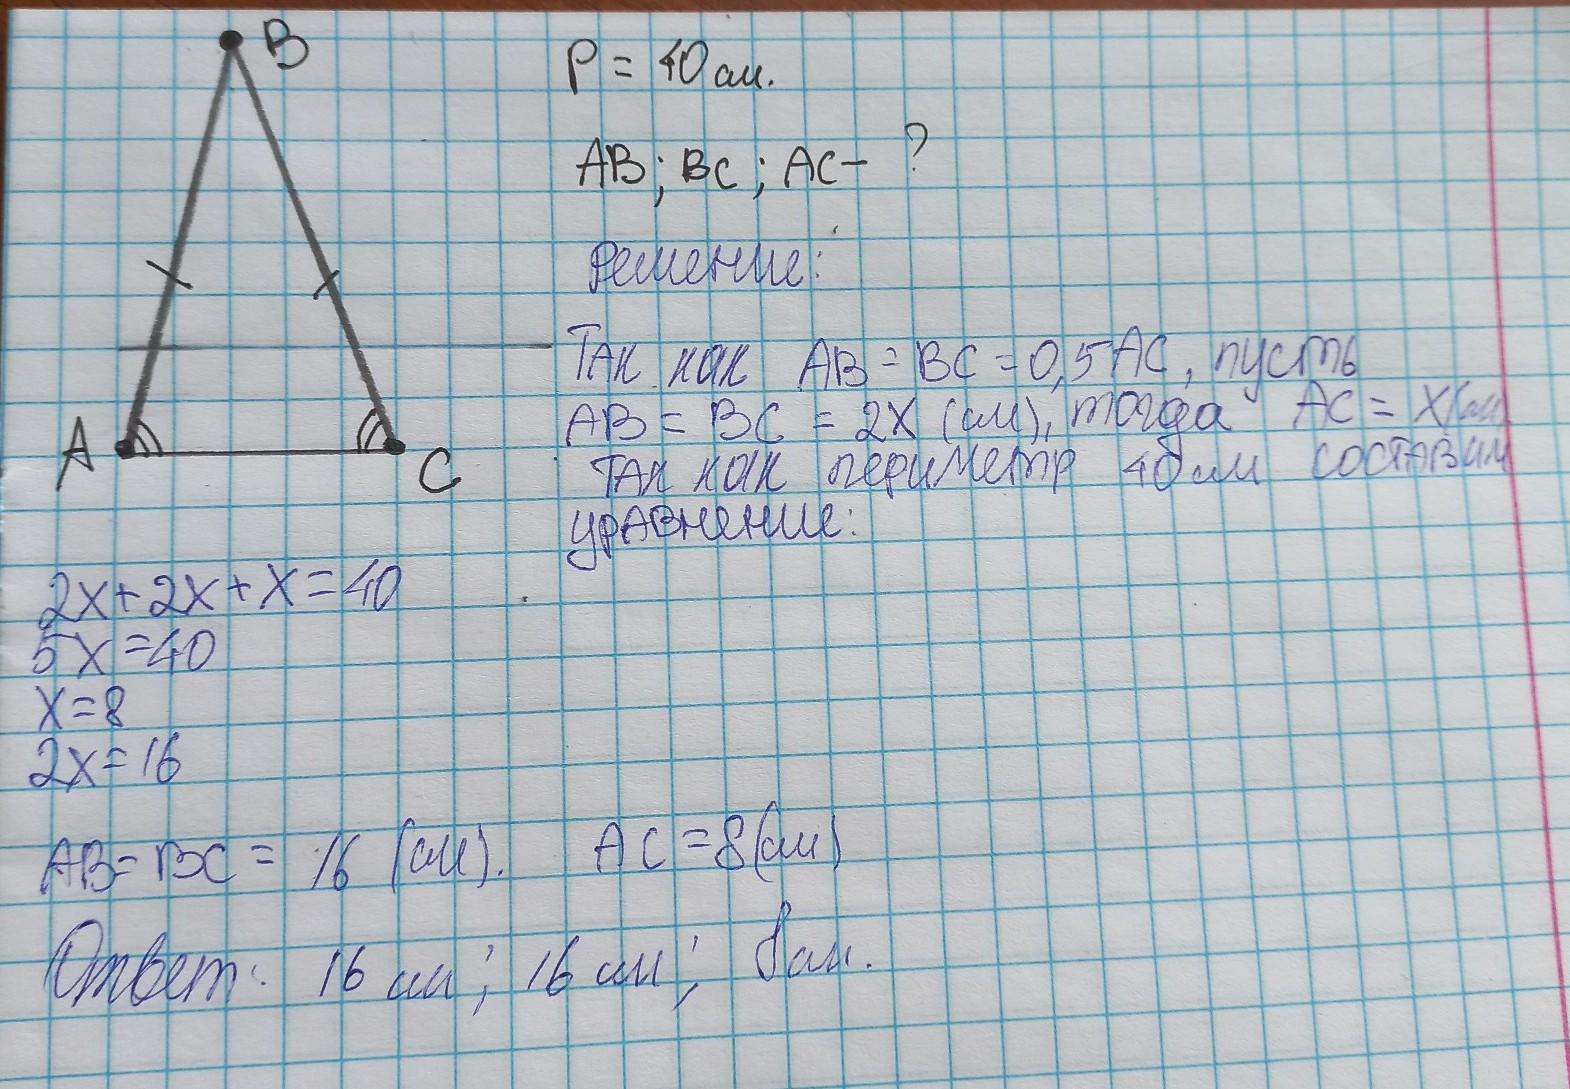 B
P = 40 см.
AB; BC; AC – ?
Решение:
Так как AB = BC = 0,5 AC, пусть
AB = BC = 2x (см), тогда AC = x (см)
A
C
Так как периметр 40 см составим
уравнение:
2x + 2x + x = 40
5x = 40
x = 8
2x = 16
AB = BC = 16 (см). AC = 8 (см)
Ответ: 16 см; 16 см; 8 см.